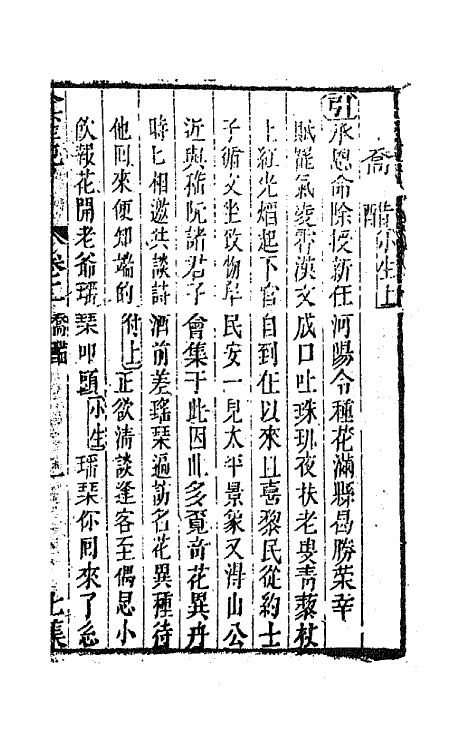 喬醋 小生上
引 承恩命除授新任河陽令種花滿縣曷勝榮幸
賦罷氣凌霄漢文成口吐珠璣夜扶老叟靑藜杖
上紅光熖起下官自到任以來且喜黎民從約士
子循文坐致物阜民安一見太平景象又得山公
近與嵇阮諸君子會集于此因此多覓竒花異卉
時匕相邀共談詩酒前差瑤琴遍訪名花異種待
他囘來便知端的 付上 正欲清談逢客至偶思小
飲報花開老爺瑤琴叩頭 小生 瑤琴你囘來了麽
卷二 喬醋 七集